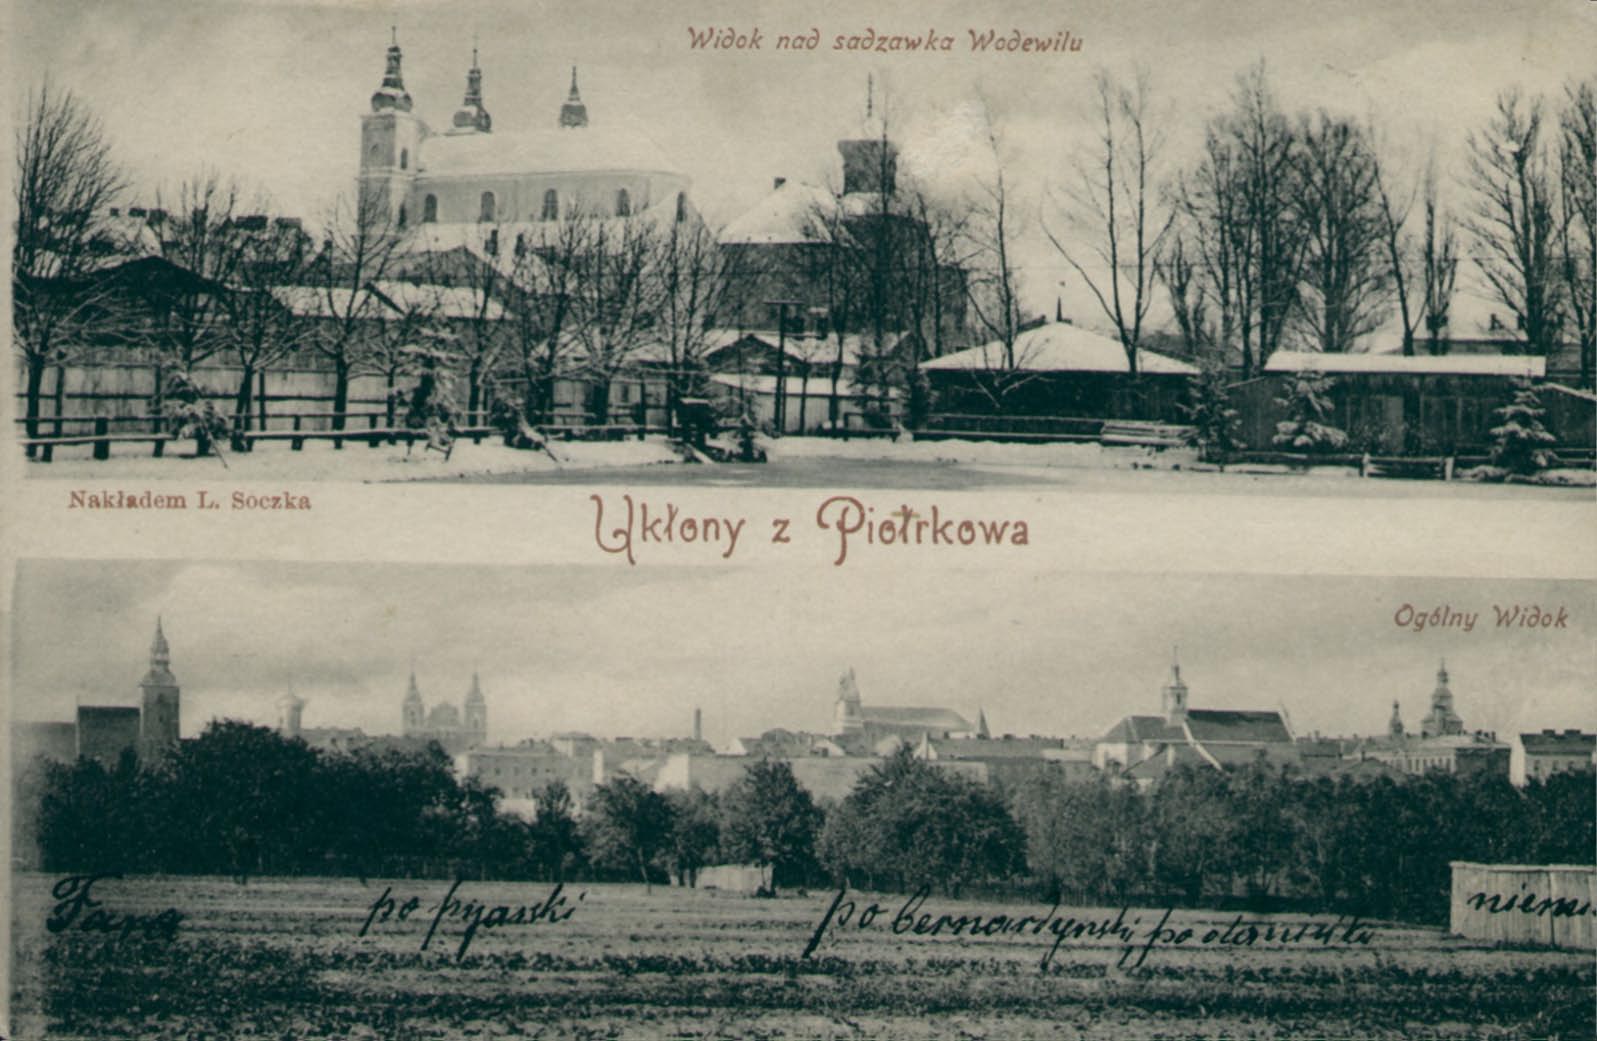 Widok nad sadzawka Wodewilu
Nakładem L. Soczka
Ukłony z Piotrkowa
Ogólny Widok
Fara po pyarski po bernardyński